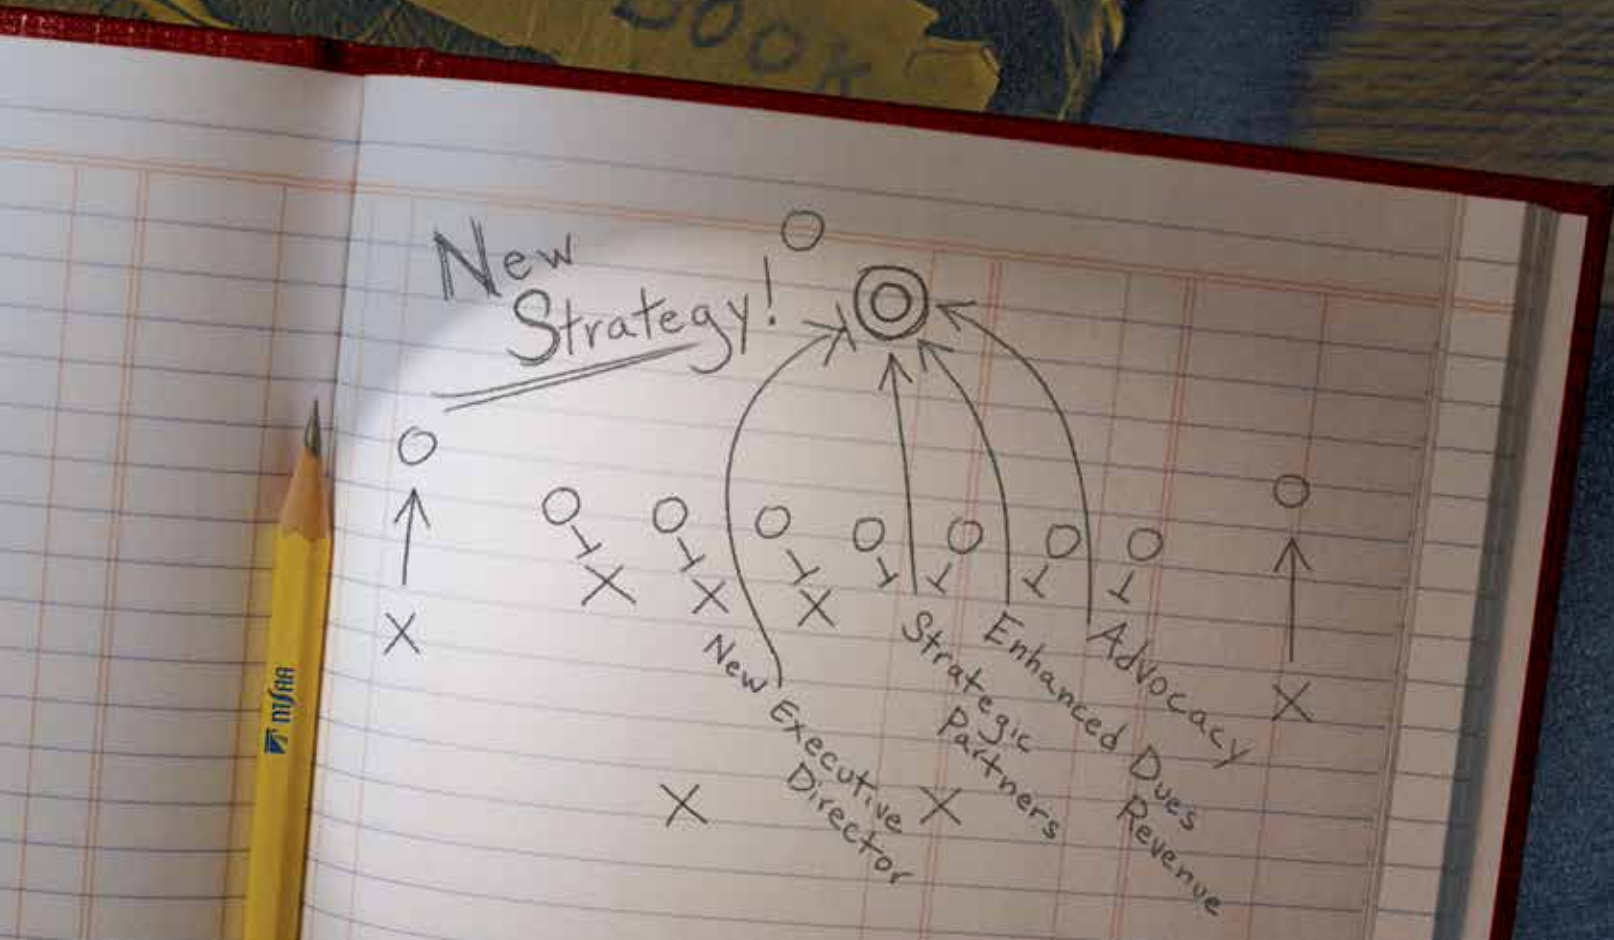 Book
New
Strategy!
New Executive
Director
Strategic
Partners
Enhanced Dues
Revenue
Advocacy